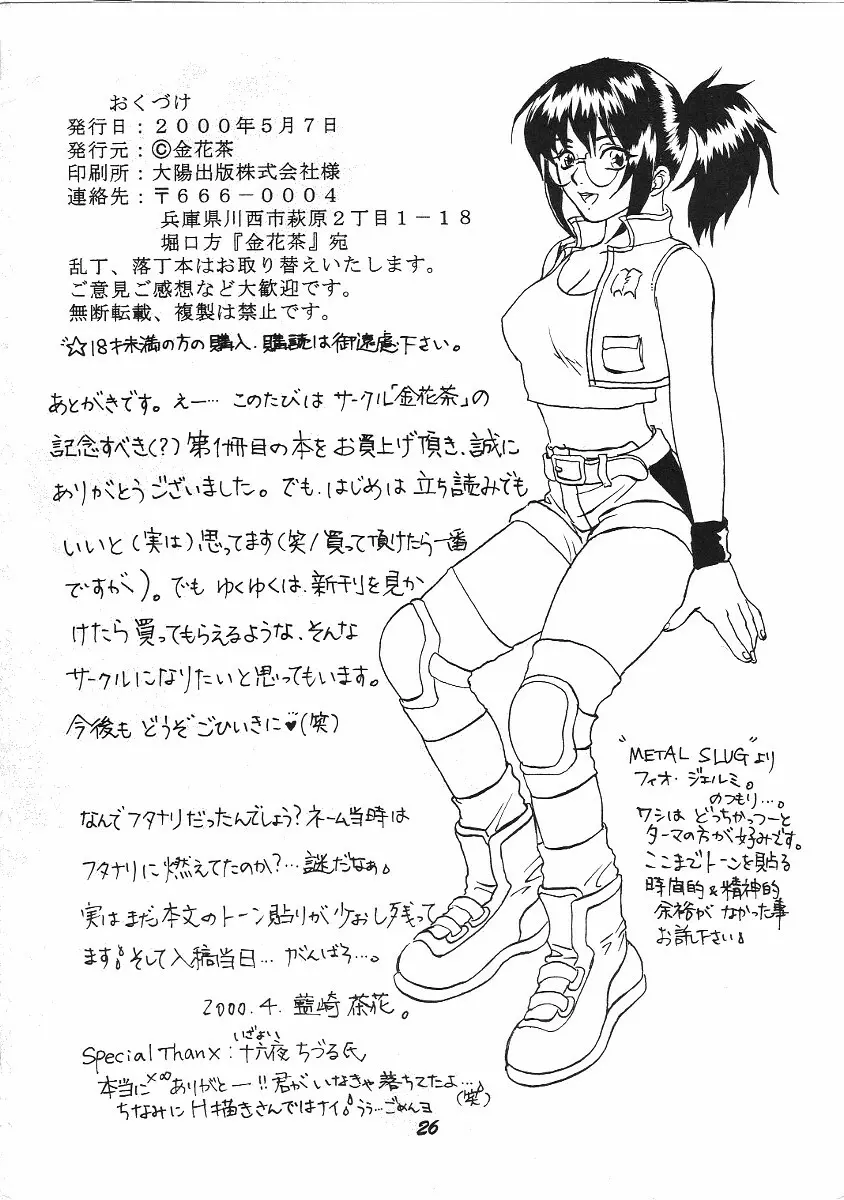 おくづけ
発行日：２０００年５月７日
発行元：©金花茶
印刷所：大陽出版株式会社様
連絡先：〒６６６－０００４
兵庫県川西市萩原２丁目１－１８
堀口方『金花茶』宛
乱丁、落丁本はお取り替えいたします。
ご意見ご感想など大歓迎です。
無断転載、複製は禁止です。
☆18才未満の方の購入、購読は御遠慮下さい。
あとがきです。えー… このたびは サークル「金花茶」の
記念すべき(?) 第1冊目の本を お買上げ頂き、誠に
ありがとうございました。でも、はじめは 立ち読みでも
いいと (実は) 思ってます (笑/買って頂けたら一番
ですが)。でも ゆくゆくは、新刊を見か
けたら 買ってもらえるような、そんな
サークルになりたいと思ってもいます。
今後も どうぞごひいきに♥(笑)
なんでフタナリだったんでしょう?ネーム当時は
フタナリに燃えてたのか?…謎だなぁ。
実は まだ本文のトーン貼りが少おし残って
ます。そして入稿当日… がんばろ…。
2000.4. 藍崎 茶花。
Special Thanx：十六夜 ちづる氏
いざよい
本当に×∞ありがとー!!君がいなきゃ落ちてたよ…。
(笑)
ちなみに H描きさんではナイ。うぅ…ごめんヨ
"METAL SLUG"より
フィオ・ジェルミ。
のつもり…。
ワシは どっちかっつーと
ターマの方が好みです。
ここまでトーンを貼る
時間的&精神的
余裕が なかった事
お許し下さい。
26